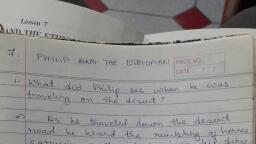 Lesson 7
AND THE
7. PHILIP AND THE ETHIOPIAN
PAGE NO.
DATE: / /
1- What did Philip see when he was
traveling on the desert?
As he traveled down the desert
road he heard the rumbling of horses